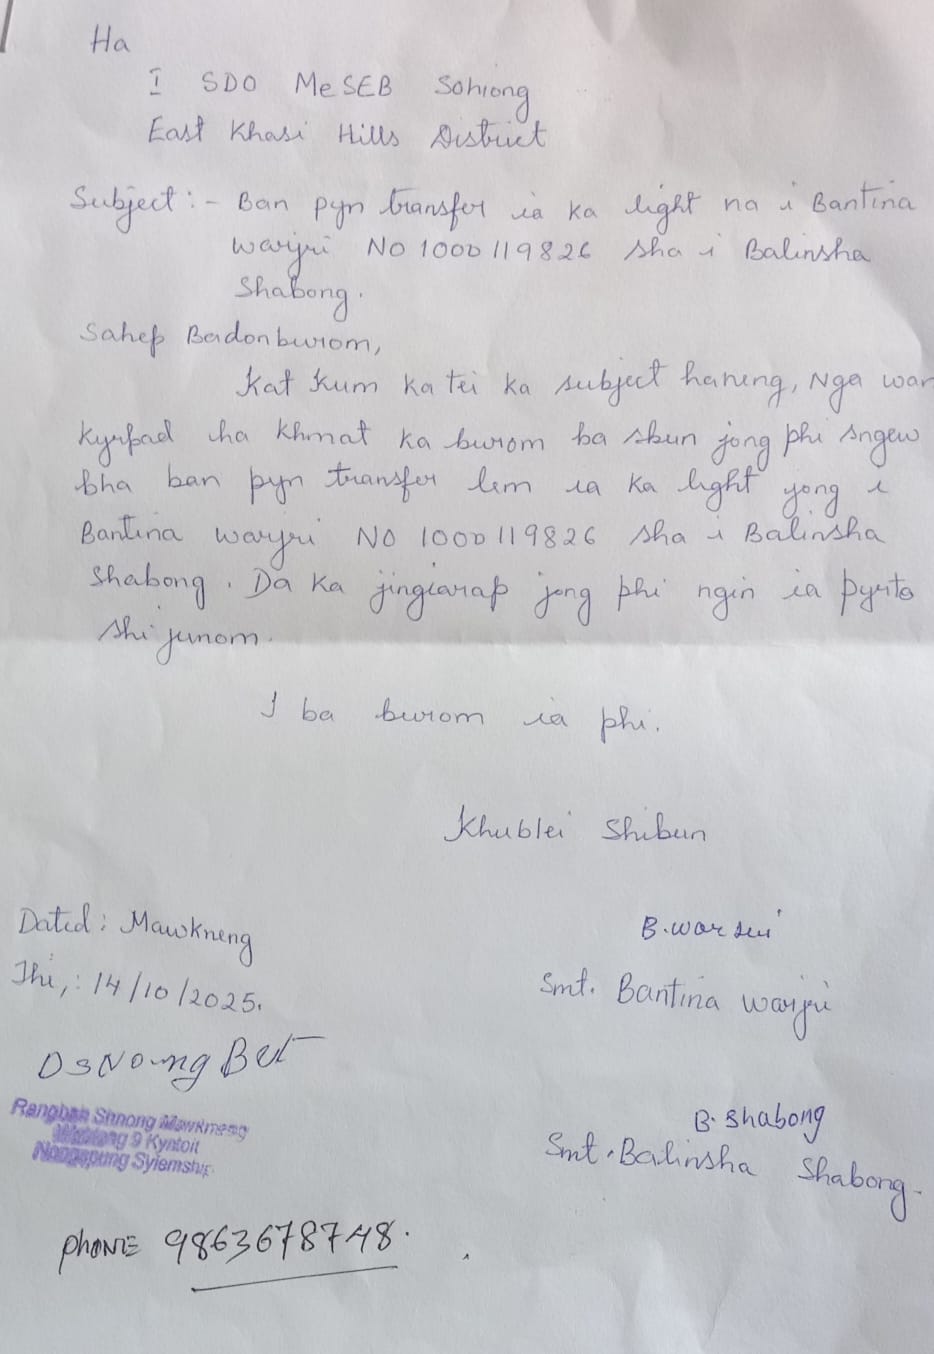 Ha
I SDO MeSEB Sohiong
East Khasi Hills District
Subject :- Ban pyn transfer ia ka light na i Bantina
Warjri NO 1000119826 sha i Balinsha
Shabong.
Sahep Badonburom,
Kat kum ka tei ka subject haneng, Nga wan
kyrpad ha khmat ka burom ba skun jong phi sngew
bha ban pyn transfer lem ia ka light yong i
Bantina Warjri NO 1000119826 sha i Balinsha
Shabong. Da ka jingiarap jong phi ngin ia pynto
shi junom.
I ba burom ia phi.
Khublei Shibun
Dated: Mawkneng
Thi,: 14/10/2025.
B. Warjri
Smt. Bantina Warjri
DsNongBet
Rangbah Shnong Mawkneng
9 Kyntoit
Nongspung Syiemship
B. Shabong
Smt. Balinsha Shabong.
PHONE 9863678748.